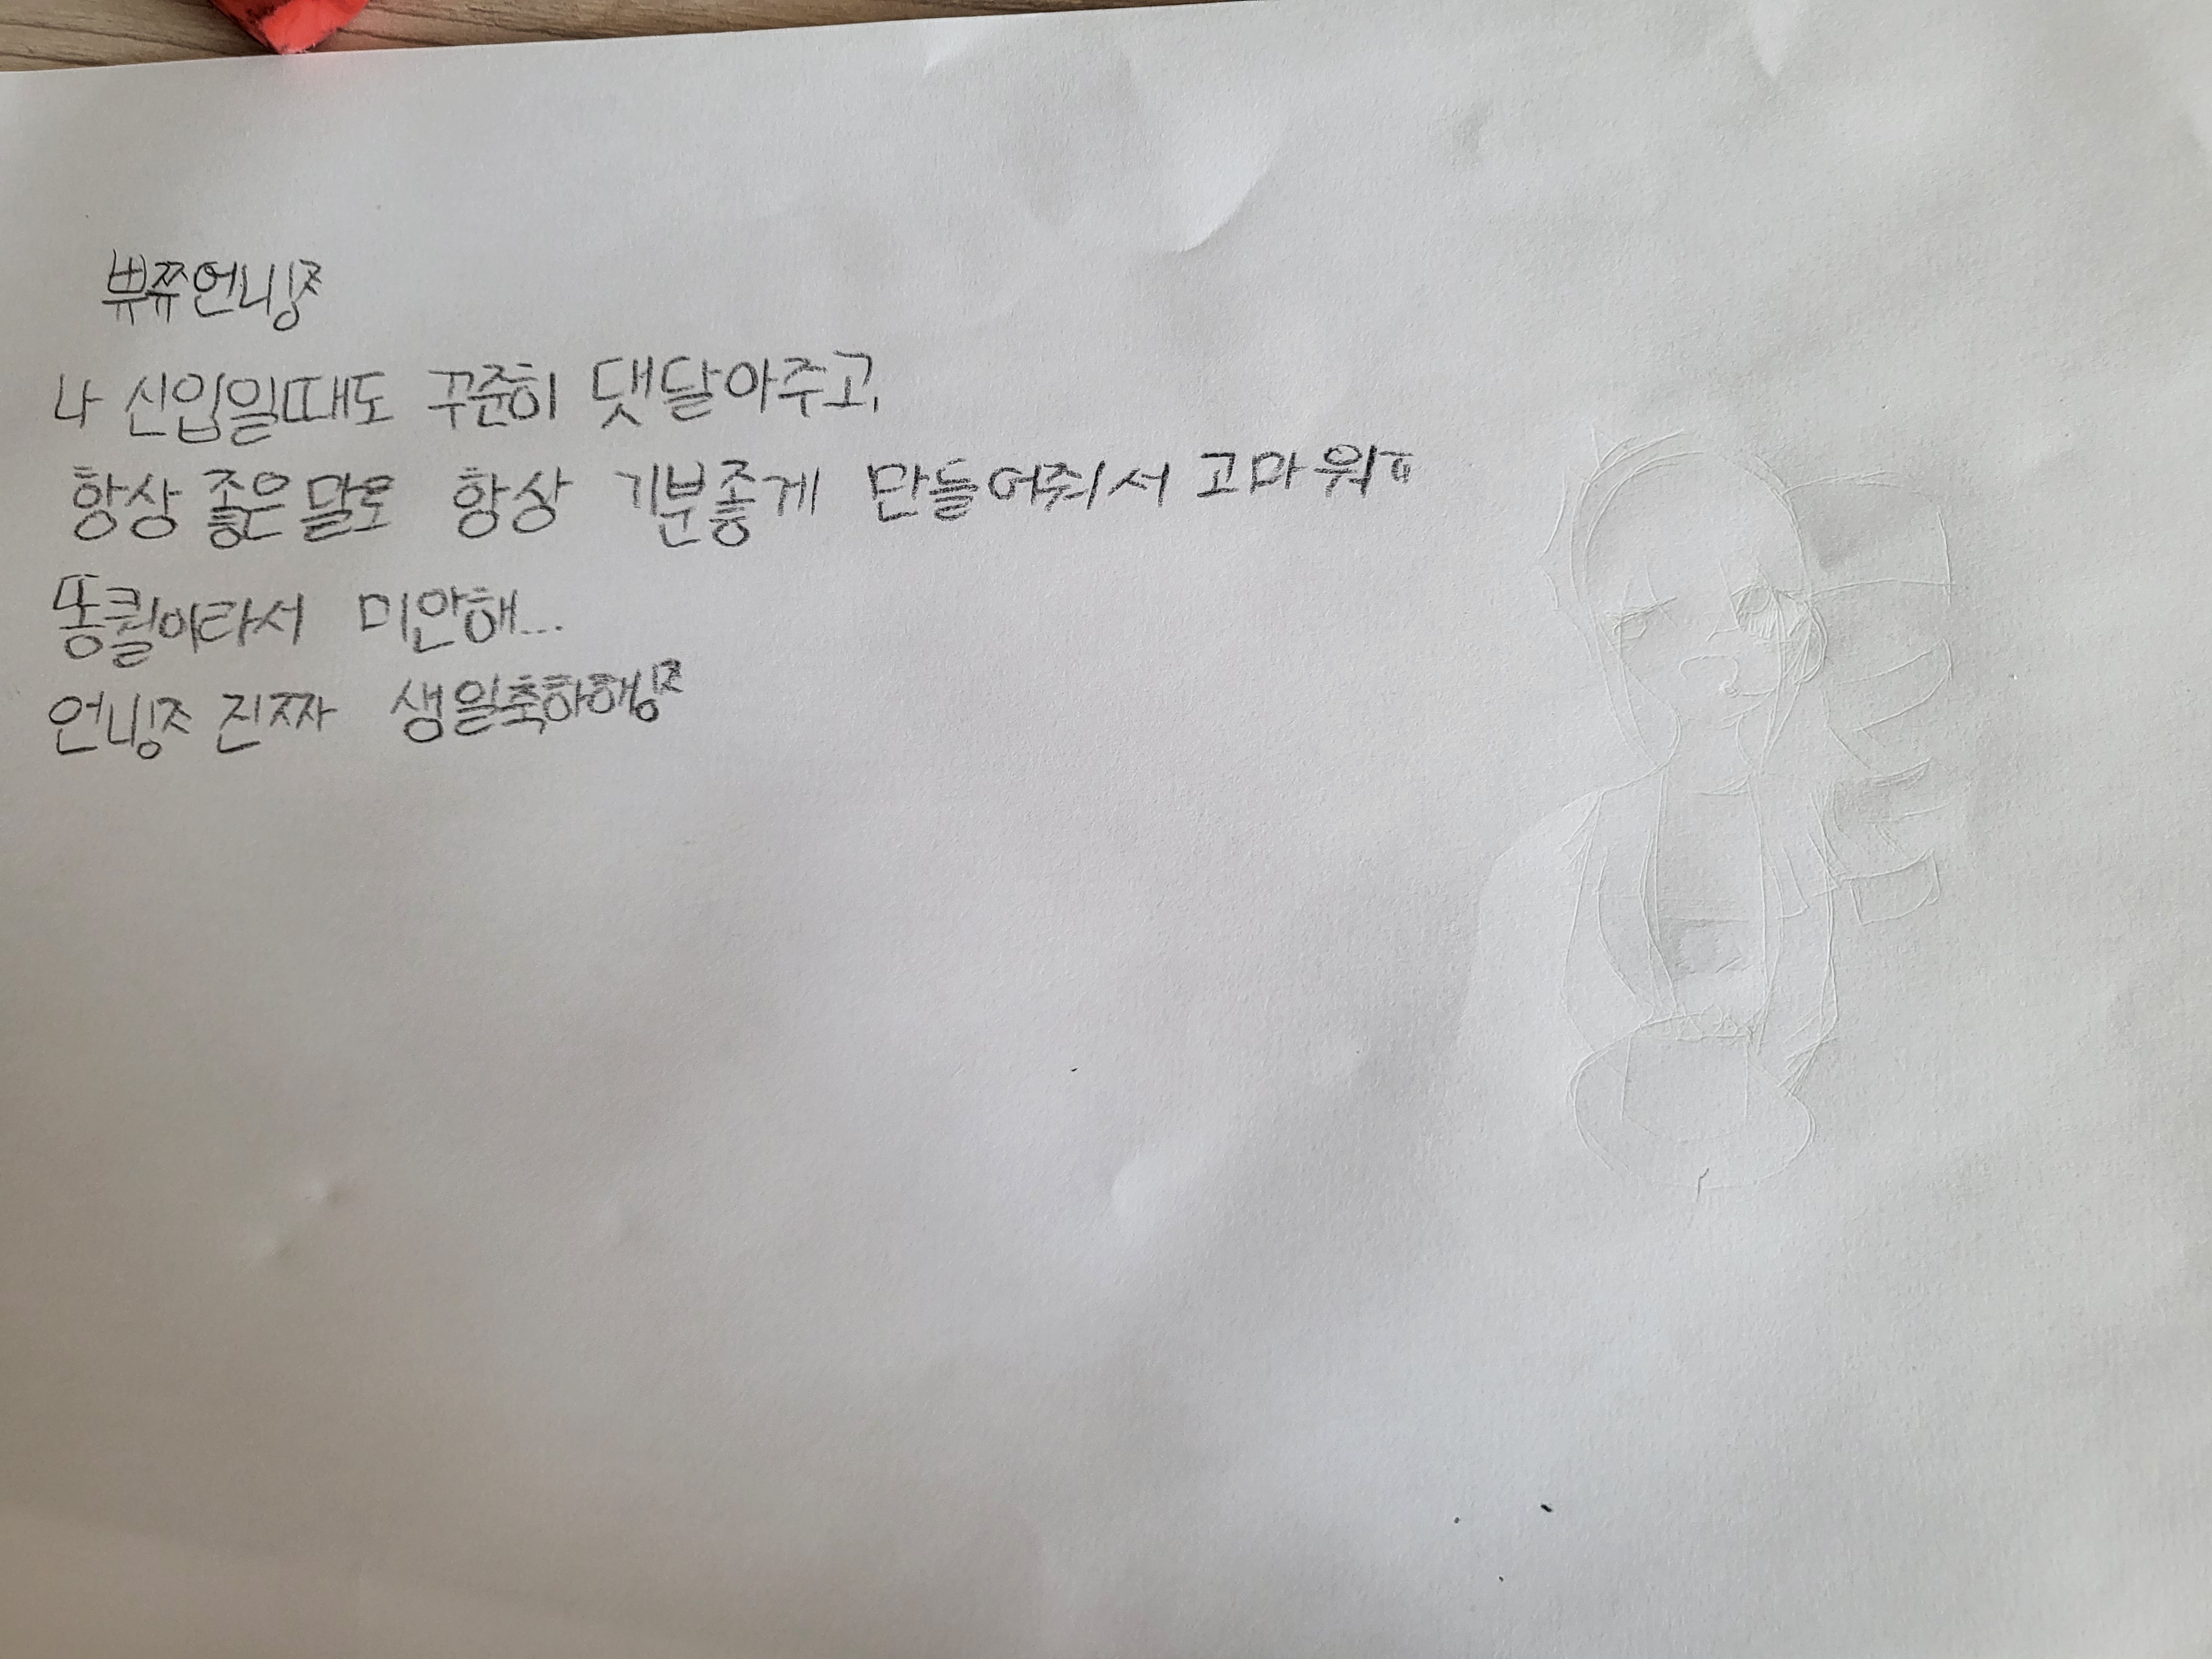 쀼쮸언니잊
나 신입일때도 꾸준히 댓달아주고,
항상 좋은말로 항상 기분좋게 만들어줘서 고마워ㅠ
똥퀄이라서 미안해...
언니잊 진짜 생일축하해잊